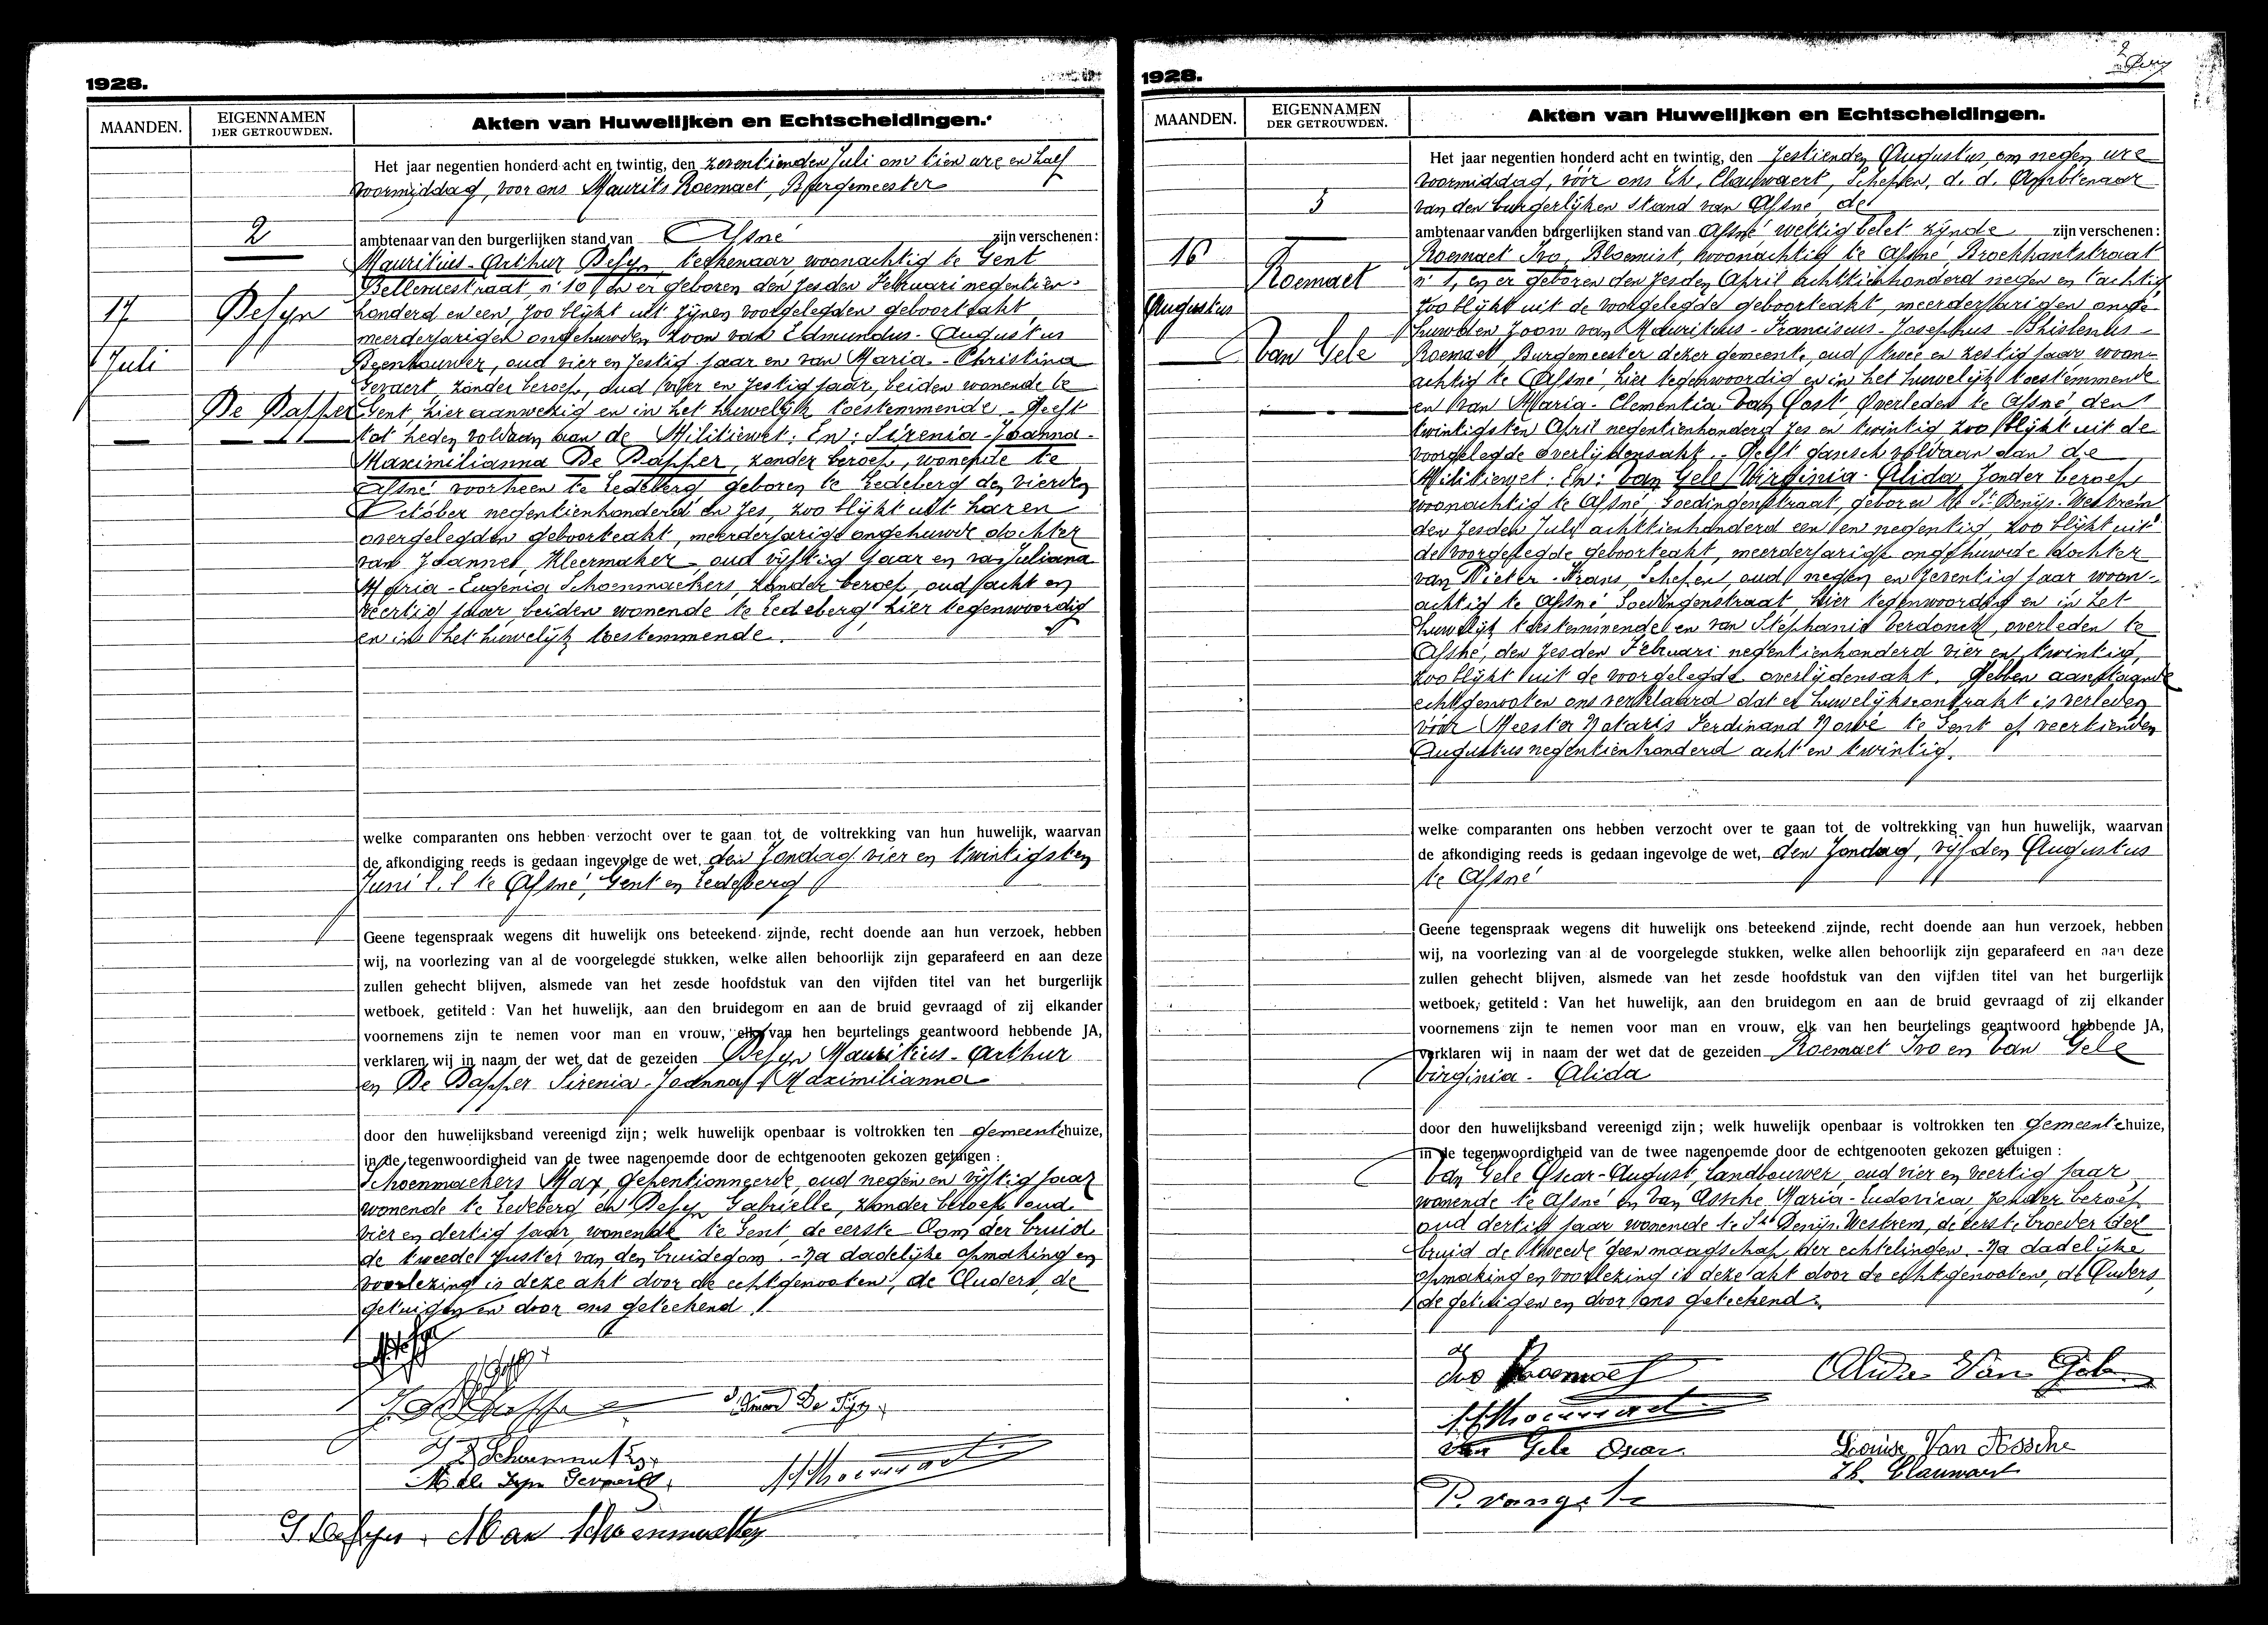 1928.
MAANDEN.
EIGENNAMEN
DER GETROUWDEN.
Akten van Huwelijken en Echtscheidingen.
2
17
Juli
Desyn
De Dapper
Het jaar negentien honderd acht en twintig, den zeventienden Juli om tien ure en half
voormiddag, voor ons Maurits Roemaet, Burgemeester
ambtenaar van den burgerlijken stand van Afsné zijn verschenen:
Mauritius-Arthur Desyn, teekenaar, woonachtig te Gent
Bellevuestraat, nr 10 en er geboren den zesden Februari negentien-
honderd en een, zoo blijkt uit zijnen voorgelegden geboorteakt,
meerderjarigen ongehuwden zoon van Edmundus-Augustus
Beenhouwer, oud vier en zestig jaar en van Maria-Christina
Gevaert, zonder beroep, oud vijf en zestig jaar, beiden wonende te
Gent hier aanwezig en in het huwelijk toestemmende. Heeft
tot heden voldaan aan de Militiewet: En: Sirenia-Joanna-
Maximilianna De Dapper, zonder beroep, wonende te
Afsné voorheen te Ledeberg geboren te Ledeberg den vierden
October negentienhonderd en zes, zoo blijkt uit haren
overgelegden geboorteakt, meerderjarige ongehuwde dochter
van Joannes, Kleermaker, oud vijftig jaar en van Juliana
Maria-Eugenia Schoenmaekers, zonder beroep, oud acht en
veertig jaar, beiden wonende te Ledeberg, hier tegenwoordig
en in het huwelijk toestemmende.
welke comparanten ons hebben verzocht over te gaan tot de voltrekking van hun huwelijk, waarvan
de afkondiging reeds is gedaan ingevolge de wet, den Zondag vier en twintigsten
Juni l.l te Afsné, Gent en Ledeberg
Geene tegenspraak wegens dit huwelijk ons beteekend zijnde, recht doende aan hun verzoek, hebben
wij, na voorlezing van al de voorgelegde stukken, welke allen behoorlijk zijn geparafeerd en aan deze
zullen gehecht blijven, alsmede van het zesde hoofdstuk van den vijfden titel van het burgerlijk
wetboek, getiteld : Van het huwelijk, aan den bruidegom en aan de bruid gevraagd of zij elkander
voornemens zijn te nemen voor man en vrouw, elk van hen beurtelings geantwoord hebbende JA,
verklaren wij in naam der wet dat de gezeiden Desyn Mauritius-Arthur
en De Dapper Sirenia-Joanna Maximilianna
door den huwelijksband vereenigd zijn; welk huwelijk openbaar is voltrokken ten gemeentehuize,
in de tegenwoordigheid van de twee nagenoemde door de echtgenooten gekozen getuigen :
Schoenmaekers Max, gepentionneerde, oud negen en vijftig jaar
wonende te Ledeberg en Desyn Gabrielle, zonder beroep oud
vier en dertig jaar, wonende te Gent, de eerste Oom der bruid
de tweede zuster van den bruidegom. - Na dadelijke opmaking en
voorlezing is deze akt door de echtgenooten, de Ouders, de
getuigen en door ons geteekend.
Max Schoenmaekers
1928.
MAANDEN.
EIGENNAMEN
DER GETROUWDEN.
Akten van Huwelijken en Echtscheidingen.
3
16
Augustus
Roemaet
Van Gele
Het jaar negentien honderd acht en twintig, den zestienden Augustus om negen ure
voormiddag, vóór ons Th. Clauwaert, Schepen, d. d. Ambtenaar
van den burgerlijken stand van Afsné de
ambtenaar van den burgerlijken stand van Afsné wettig belet zijnde zijn verschenen:
Roemaet Ivo, Bloemist, woonachtig te Afsné Broekkantstraat
nr 1, en er geboren den zesden April achttienhonderd negen en tachtig
zoo blijkt uit de voorgelegde geboorteakt, meerderjarigen onge-
huwden zoon van Mauritius-Franciscus-Josephus-Ghislenus-
Roemaet, Burgemeester dezer gemeente, oud twee en zestig jaar woon-
achtig te Afsné, hier tegenwoordig en in het huwelijk toestemmende
en van Maria-Clementia Van Oost, Overleden te Afsné den
twintigsten April negentienhonderd zes en twintig zoo blijkt uit de
voorgelegde overlijdensakt. - Heeft gansch voldaan aan de
Militiewet. En: Van Gele Virginia-Alida zonder beroep
woonachtig te Afsné, Goedingenstraat, geboren te St Denijs-Westrem
den zesden July achttienhonderd een en negentig, zoo blijkt uit
de voorgelegde geboorteakt, meerderjarige ongehuwde dochter
van Pieter-Frans, Schepen, oud negen en zeventig jaar woon-
achtig te Afsné Goedingenstraat, hier tegenwoordig en in het
huwelijk toestemmende en van Stephanie Verdonck, overleden te
Afsné, den zesden Februari negentienhonderd vier en twintig,
zoo blijkt uit de voorgelegde overlijdensakt. Hebben aanstaande
echtgenooten ons verklaard dat er huwelijkscontrakt is verleden
vóór Meester Notaris Ferdinand Nowé te Gent op veertienden
Augustus negentienhonderd acht en twintig.
welke comparanten ons hebben verzocht over te gaan tot de voltrekking van hun huwelijk, waarvan
de afkondiging reeds is gedaan ingevolge de wet, den Zondag, vijfden Augustus
te Afsné
Geene tegenspraak wegens dit huwelijk ons beteekend zijnde, recht doende aan hun verzoek, hebben
wij, na voorlezing van al de voorgelegde stukken, welke allen behoorlijk zijn geparafeerd en aan deze
zullen gehecht blijven, alsmede van het zesde hoofdstuk van den vijfden titel van het burgerlijk
wetboek, getiteld : Van het huwelijk, aan den bruidegom en aan de bruid gevraagd of zij elkander
voornemens zijn te nemen voor man en vrouw, elk van hen beurtelings geantwoord hebbende JA,
verklaren wij in naam der wet dat de gezeiden Roemaet Ivo en Van Gele
Virginia-Alida
door den huwelijksband vereenigd zijn; welk huwelijk openbaar is voltrokken ten gemeentehuize,
in de tegenwoordigheid van de twee nagenoemde door de echtgenooten gekozen getuigen :
Van Gele Oscar-August, Landbouwer, oud vier en veertig jaar,
wonende te Afsné en Van Assche Maria-Ludovica, zonder beroep
oud dertig jaar wonende te St Denijs Westrem, de eerste broeder der
bruid de tweede geen maagschap der echtelingen. - Na dadelijke
opmaking en voorlezing is deze akt door de echtgenooten, de Ouders,
de getuigen en door ons geteekend.
Ivo Roemaet Alida Van Gele
Van Gele Oscar Louise Van Assche
Th. Clauwaert
P. vangele